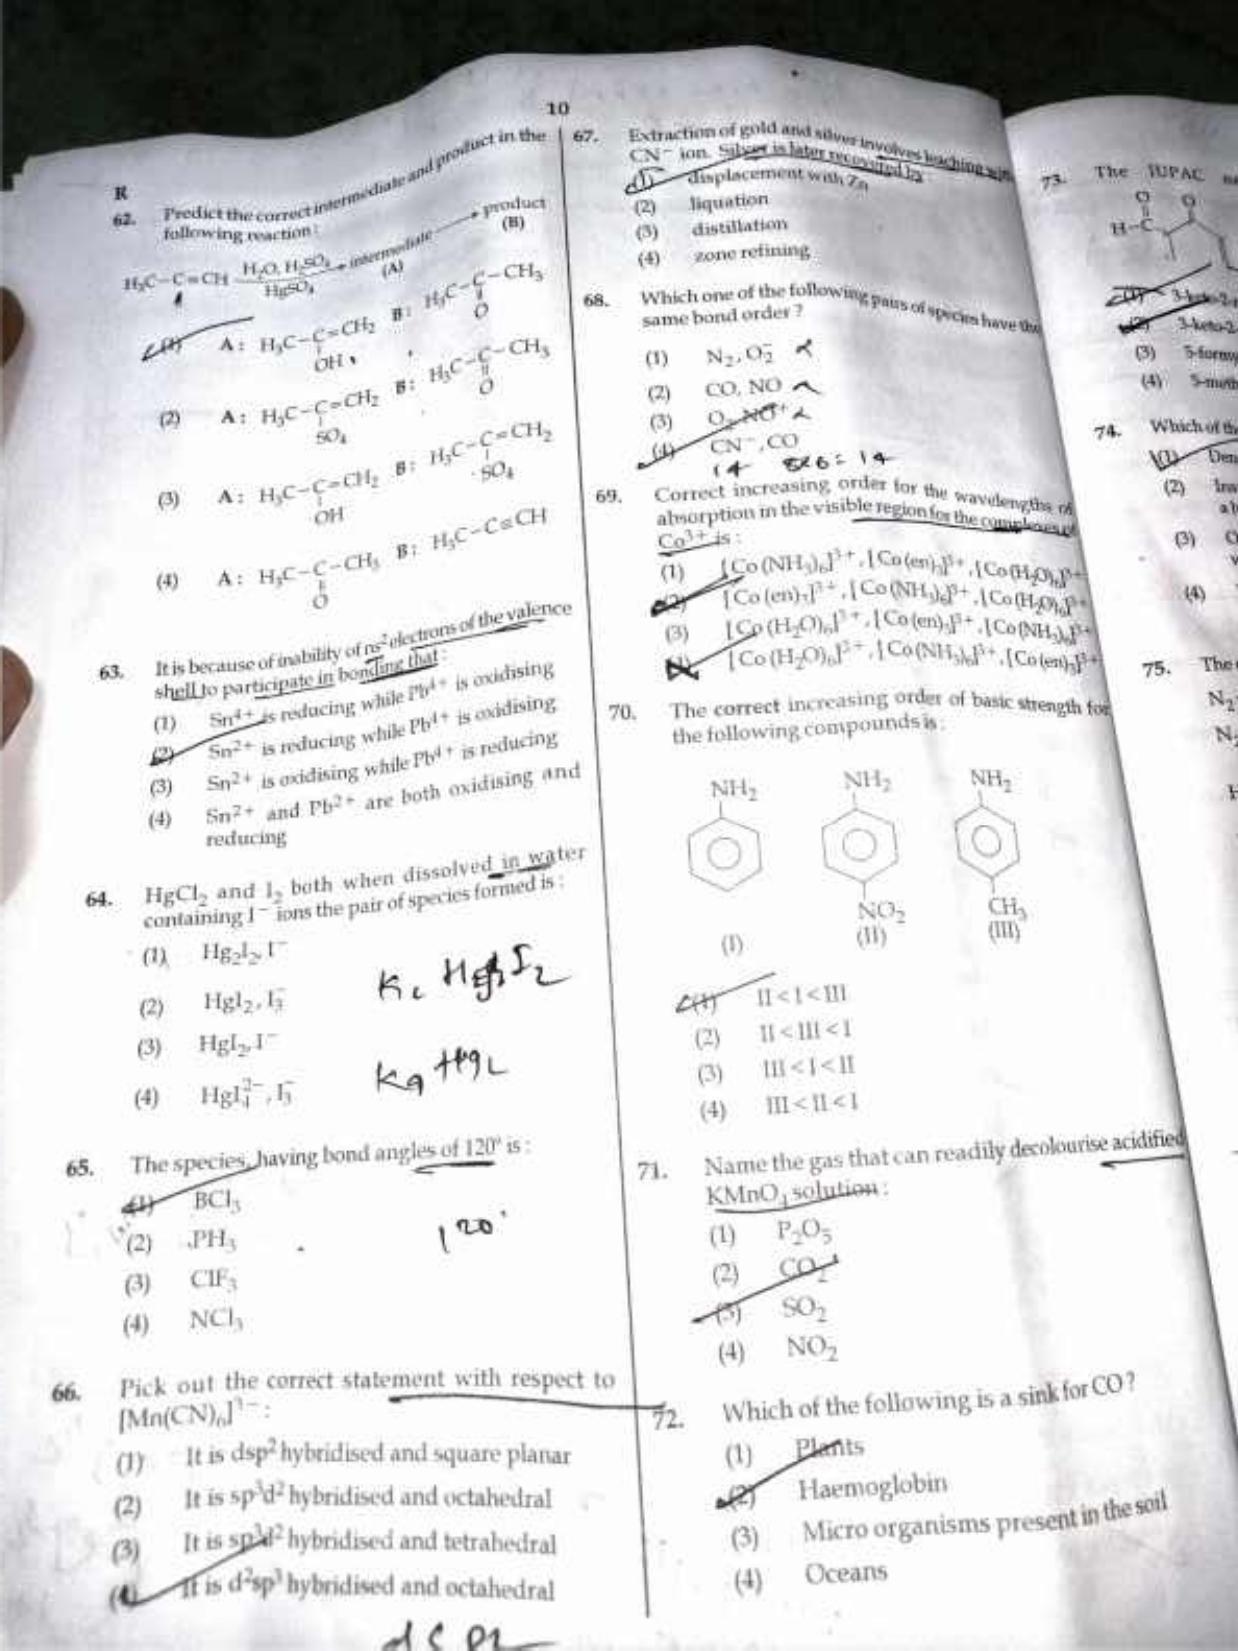 10
R
62. Predict the correct intermediate and product in the
following reaction :
H₃C–C≡CH H₂O, H₂SO₄ / HgSO₄ → intermediate (A) → product (B)
(1) A : H₃C–C=CH₂ B : H₃C–C–CH₃
OH O
(2) A : H₃C–C=CH₂ B : H₃C–C–CH₃
SO₄ O
(3) A : H₃C–C=CH₂ B : H₃C–C=CH₂
OH SO₄
(4) A : H₃C–C–CH₃ B : H₃C–C≡CH
O
63. It is because of inability of ns² electrons of the valence
shell to participate in bonding that :
(1) Sn⁴⁺ is reducing while Pb⁴⁺ is oxidising
(2) Sn²⁺ is reducing while Pb⁴⁺ is oxidising
(3) Sn²⁺ is oxidising while Pb⁴⁺ is reducing
(4) Sn²⁺ and Pb²⁺ are both oxidising and
reducing
64. HgCl₂ and I₂ both when dissolved in water
containing I⁻ ions the pair of species formed is :
(1) Hg₂I₂, I⁻
(2) HgI₂, I₃⁻
(3) HgI₂, I⁻
(4) HgI₄²⁻, I₃⁻
65. The species, having bond angles of 120° is :
(1) BCl₃
(2) PH₃
(3) ClF₃
(4) NCl₃
120°
66. Pick out the correct statement with respect to
[Mn(CN)₆]³⁻ :
(1) It is dsp² hybridised and square planar
(2) It is sp³d² hybridised and octahedral
(3) It is sp³d² hybridised and tetrahedral
(4) It is d²sp³ hybridised and octahedral
67. Extraction of gold and silver involves leaching with
CN⁻ ion. Silver is later recovered by :
(1) displacement with Zn
(2) liquation
(3) distillation
(4) zone refining
68. Which one of the following pairs of species have the
same bond order ?
(1) N₂, O₂⁻
(2) CO, NO
(3) O₂, NO⁺
(4) CN⁻, CO
14 8+6=14
69. Correct increasing order for the wavelengths of
absorption in the visible region for the complexes of
Co³⁺ is :
(1) [Co(NH₃)₆]³⁺, [Co(en)₃]³⁺, [Co(H₂O)₆]³⁺
(2) [Co(en)₃]³⁺, [Co(NH₃)₆]³⁺, [Co(H₂O)₆]³⁺
(3) [Co(H₂O)₆]³⁺, [Co(en)₃]³⁺, [Co(NH₃)₆]³⁺
(4) [Co(H₂O)₆]³⁺, [Co(NH₃)₆]³⁺, [Co(en)₃]³⁺
70. The correct increasing order of basic strength for
the following compounds is :
NH₂ NH₂ NH₂
NO₂ CH₃
(I) (II) (III)
(1) II < I < III
(2) II < III < I
(3) III < I < II
(4) III < II < I
71. Name the gas that can readily decolourise acidified
KMnO₄ solution :
(1) P₂O₅
(2) CO₂
(3) SO₂
(4) NO₂
72. Which of the following is a sink for CO ?
(1) Plants
(2) Haemoglobin
(3) Micro organisms present in the soil
(4) Oceans
73. The IUPAC
O O
H–C
(1) 3-keto-2-
(2) 3-keto-2-
(3) 5-form
(4) 5-meth
74. Which of the
(1) Den
(2)
(3)
(4)
75. The
N₂
N₂